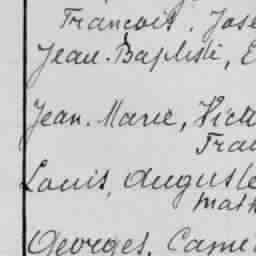 François, José
Jean-Baptiste, E
Jean-Marie, Vict
Fran
Louis, Auguste
Math
Georges, Cami